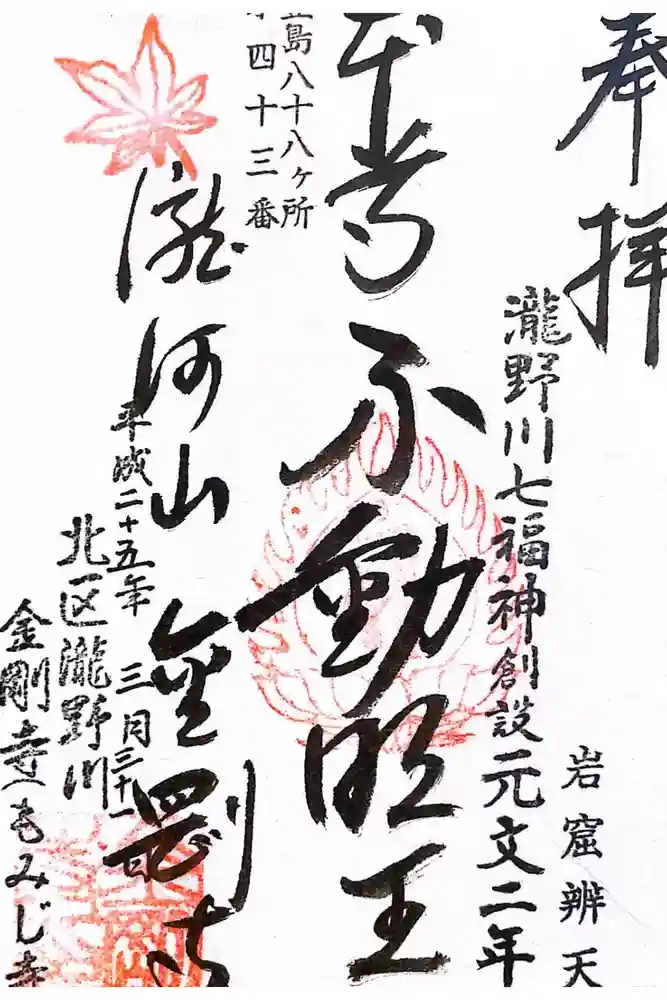 奉拝
岩窟辨天
瀧野川七福神創設元文二年
本尊不動明王
豊島八十八ヶ所
第四十三番
瀧河山金剛寺
平成二十五年三月三十一
北区瀧野川
金剛寺(もみじ寺